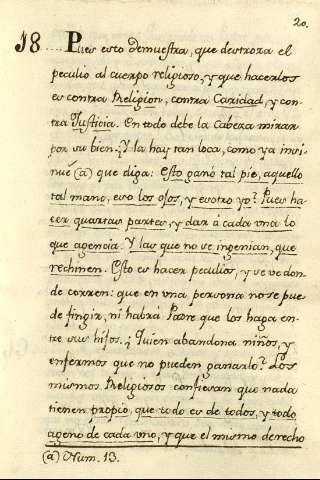 20.
18 Pues esto demuestra, que destroza el
peculio al cuerpo religioso, y que hacerlos
es contra Religion, contra Caridad, y con-
tra Justicia. En todo debe la Cabeza mirar
por su bien. Y la hay tan loca, como ya insi-
nué (a) que diga: Esto ganó tal pie, aquello
tal mano, eso los ojos, y esotro yo? Pues ha-
cer quartas partes, y dar á cada una lo
que agencia: Y las que no se ingenian, que
rechinen. Esto es hacer peculios, y se ve don-
de corren: que en una persona no se pue-
de fingir, ni habrá Padre que los haga en-
tre sus hijos. ¿Quien abandona niños, y
enfermos que no pueden ganarlo? Los
mismos Religiosos confiesan que nada
tienen própio, que todo es de todos, y todo
ageno de cada uno, y que el mismo derecho
(a) Num. 13.